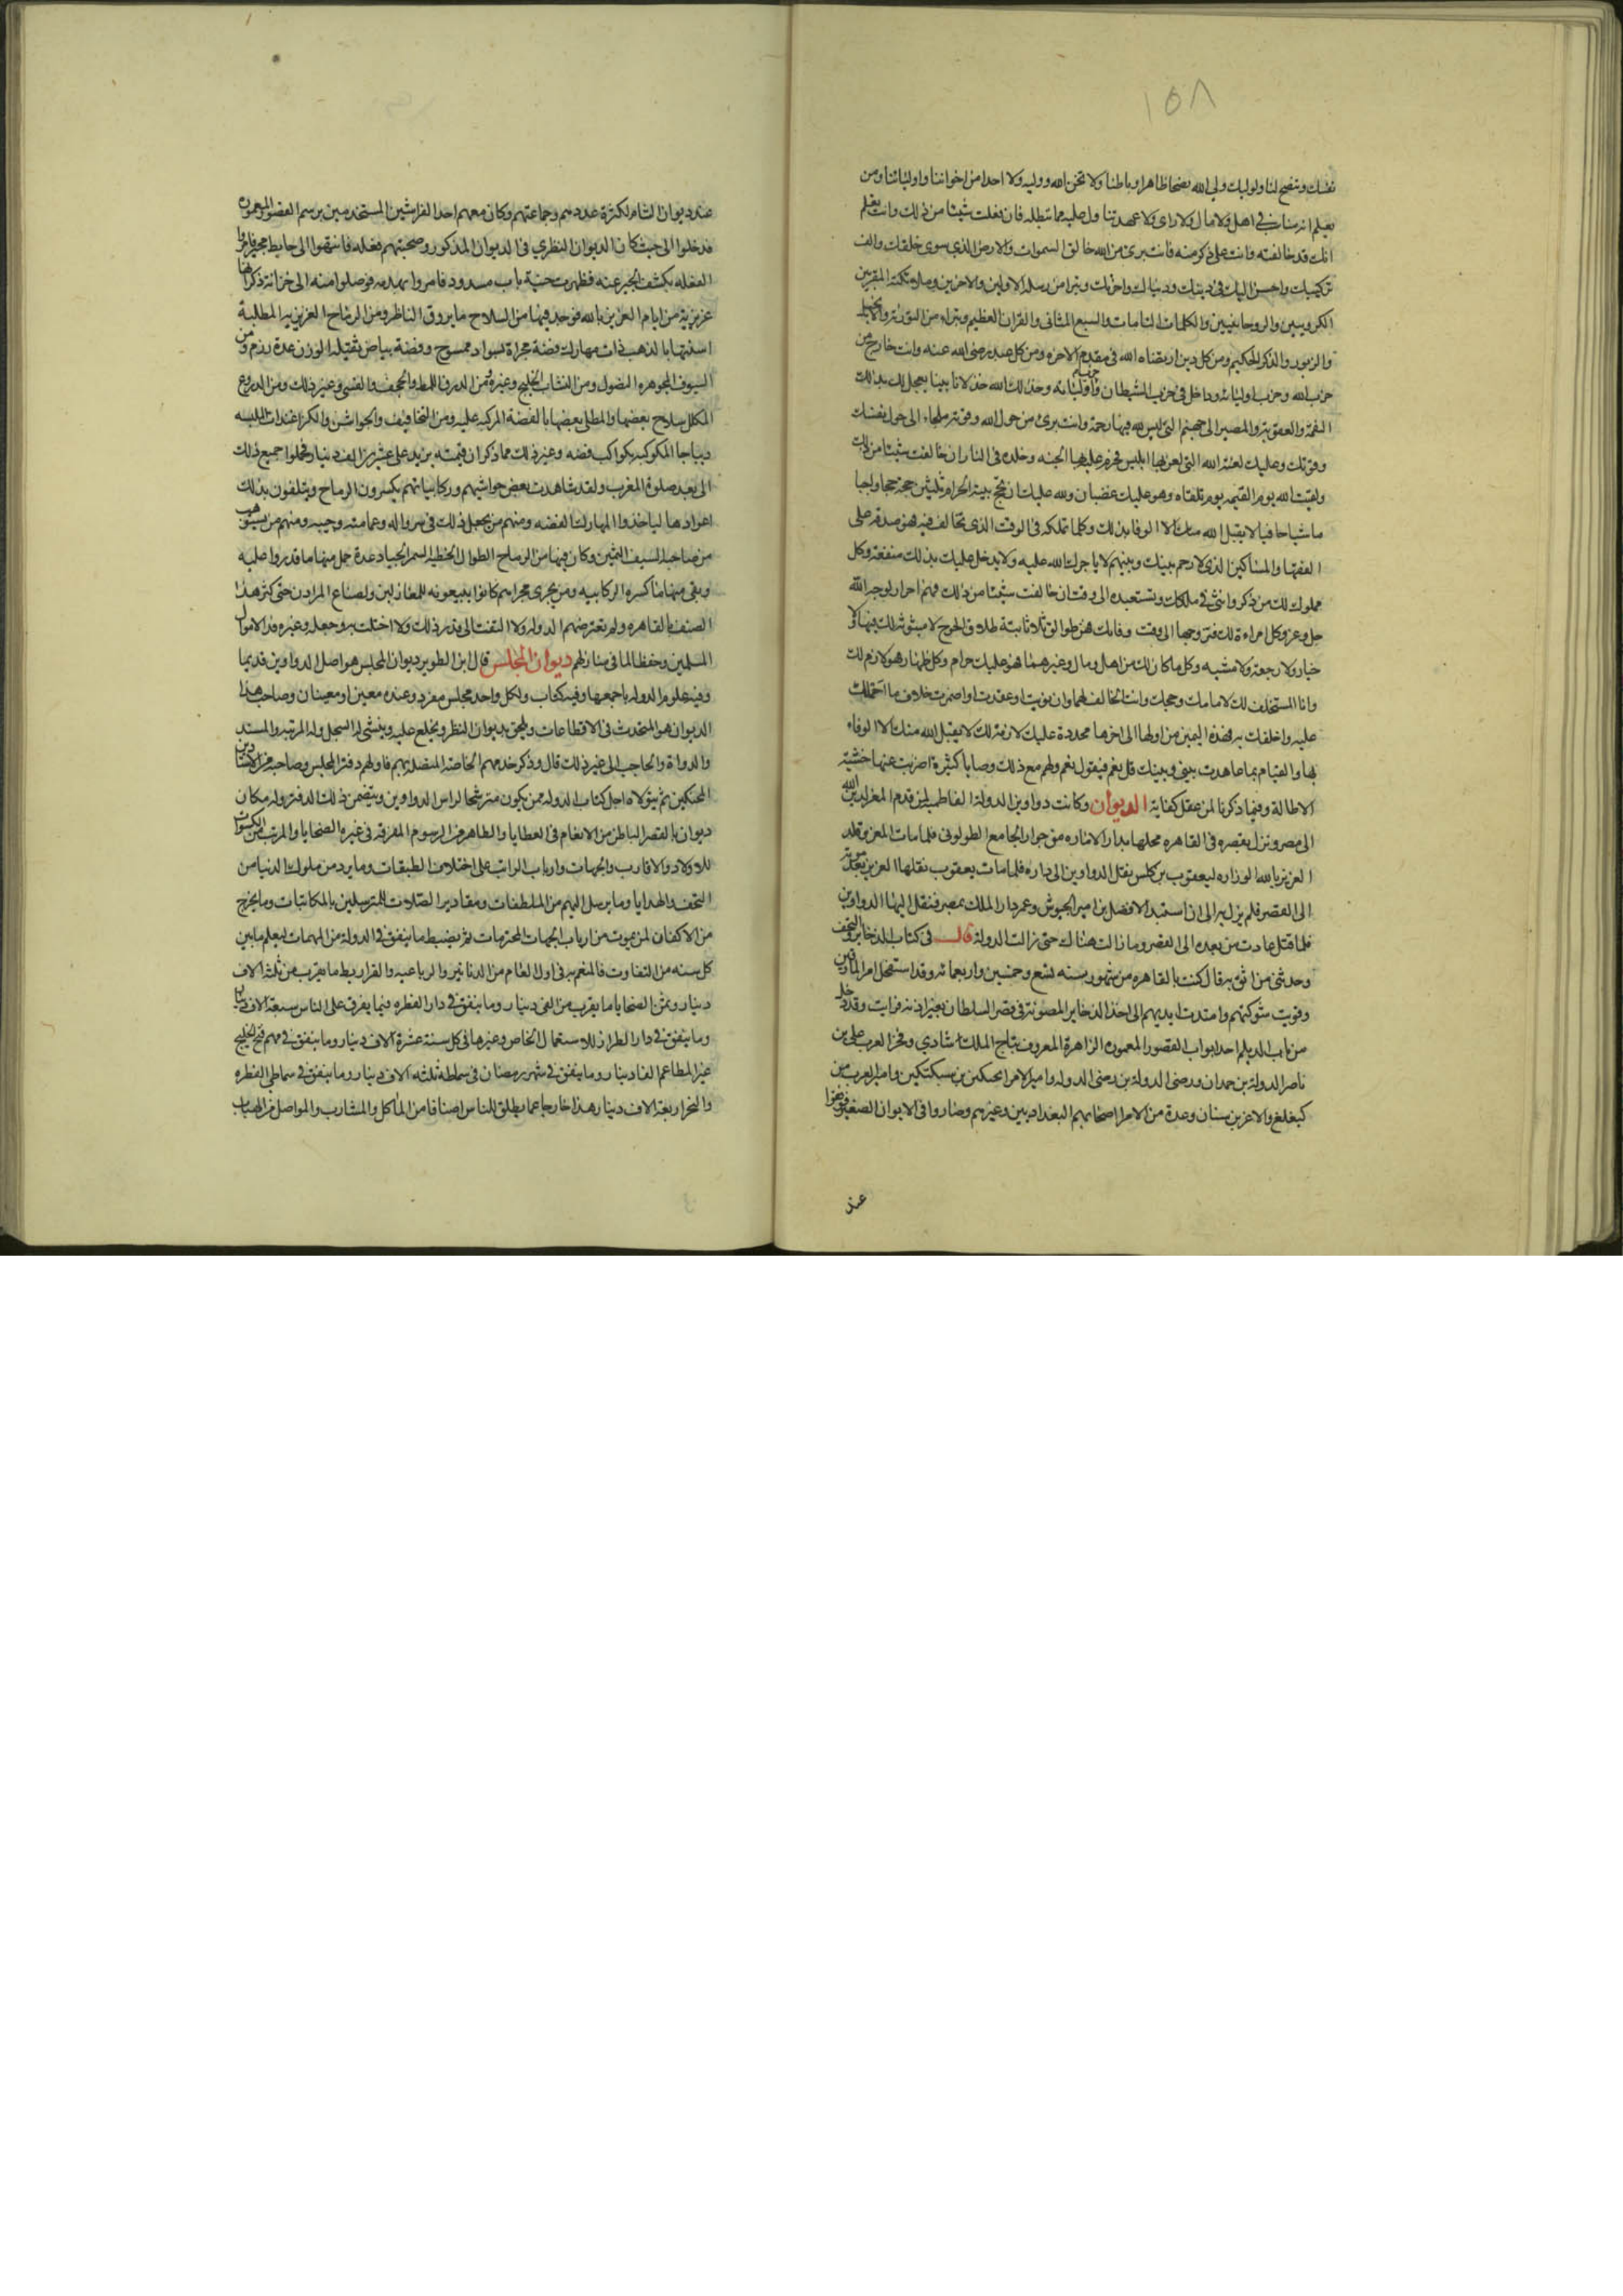 ١٥٨
نفسك وتنصح لنا ولوليك ولي الله نصحا ظاهرا وباطنا ولا تخن الله ووليه ولا احدا من اخواننا واوليائنا ومن
تعلم انه منا في اهل ولا مال ولا راى ولا عهد ولا تتاول عليه مما تبطله فان فعلت شيئا من ذلك وانت تعلم
انك قد خالفته وانت على ذكر منه فانت برى من الله خالق السموات والارض الذى سوى خلقك والف
تركيبك واحسن اليك فى دينك ودنياك واخرتك وتبرا من رسله الاولين والاخرين وملائكته المقربين
الكروبيين والروحانيين والكلمات التامات والسبع المثانى والقران العظيم وتبراء من التورية والانجيل
والزبور والذكر الحكيم ومن كل دين ارتضاه الله فى مقدم الاخره ومن كل عبد رضى الله عنه وانت خارج من
حزب الله وحزب اوليائه وداخل فى حزب الشيطان وحزب اوليائه وخذلك الله خذلانا بينا يعجل لك بذلك
النقمة والعقوبة والمصير الى جهنم التى ليس لله فيها رحمة وانت برئ من حول الله وقوته ملجاء الى حول نفسك
وقوتك وعليك لعنة الله التى لعن بها ابليس فحرم عليه بها الجنه وخلده فى النار ان خالفت شيئا من ذلك
ولقيت الله يوم القيمه يوم تلقاه وهو عليك غضبان ولله عليك ان تحج بيته الحرام ثلثين حجة حجا واجبا
ماشيا حافيا لا يقبل الله منك الا الوفا بذلك وكلما تملكه فى الوقت الذى تخالف فيه فهو صدقة على
الفقها والمساكين الذى لا رحم بينك وبينهم لا ياجرك الله عليه ولا يدخل عليك بذلك منفعة وكل
مملوك لك من ذكر وانثى فى ملكك وتستعبده الى وقت ان خالفت شيئا من ذلك فهم احرار لوجه الله
جل وعز وكل امراءة لك تتزوجها الى وقت وفاتك فهن طوالق ثلاثا بتة طلاق الحرج لا مثوبة لك فيها ولا
خيار ولا رجعة ولا مشيه وكل ما كان لك من اهل ومال وغيرهما فهو عليك حرام وكل ظهار فهو لازم لك
وانا المستخلف لك لامامك وحجتك وانت الحالف لهما وان نويت او عقدت او اضمرت خلاف ما احملك
عليه واحلفك به فهذه اليمين من اولها الى اخرها محددة عليك لازمة لك لا يقبل الله منك الا الوفاء
بها والقيام بما عاهدت بينى وبينك قل نعم فيقول نعم ولهم مع ذلك وصايا كثيرة اضربت عنها خشية
الاطالة وفيما ذكرنا لمن عقل كفاية الديوان وكانت دواوين الدولة الفاطميه لمن قدم المعز لدين الله
الى مصر ونزل بقصره فى القاهره محلها بدار الاماره من جوار الجامع الطولونى فلما مات المعز وقلد
العزيز بالله الوزاره ليعقوب بن كلس نقل الدواوين الى داره فلما مات يعقوب نقلها العزيز بعد موته
الى القصر فلم يزل به الى ان استبد الافضل بن امير الجيوش وعمر دار الملك بمصر فنقل اليها الدواوين
فلما قتل عادت من بعده الى القصر وما زالت هناك حتى زالت الدولة قال فى كتاب الذخاير والتحف
وحدثنى من اثق به قال كنت بالقاهره من شهور سنه تسع وخمسين واربعمائه وقد استفحل امر المارقين
وقويت شوكتهم وامتدت ايديهم الى اخذ الذخاير المصونة فى قصر السلطان بغير اذنه فرايت وقد دخل
من باب الديلم احد ابواب القصور المعموره الزاهرة المعروف بتاج الملك شادي وفخر العرب على بن
ناصر الدولة بن حمدان ورضى الدولة بن رضى الدوله وامير الامرا بحتكين بن سبكتكين وامير العرب بن
كيغلغ والاعز بن سنان وعدة من الامرا اصحابهم البغداديين وغيرهم وصاروا فى الايوان الصغير فوقفوا
عند
عند ديوان الشام لكثرة عددهم وجماعتهم وكان معهم احد الفراشين المستخدمين برسم القصور المعموره
فدخلوا الى حيث كان الديوان النظري فى الديوان المذكور وصحبتهم فعله فانتهوا الى حايط مجير فامروا
الفعله بكشف الجير عنه فظهرت حنية باب مسدود فامروا بهدمه فوصلوا منه الى خزانة ذكر انها
عزيزية من ايام العزيز بالله فوجد فيها من السلاح ما يروق الناظر ومن الرماح العزيزيه المطلية
اسنتها بالذهب ذات مهارك فضة مجراة بسواد ممسوح وفضة بياض ثقيلة الوزن عدة رزم ومن
السيوف المجوهره النصول ومن النشاب الخلنج وغيره ومن الدرق اللمط والحجف والقسى وغير ذلك ومن الدروع
المكلل سلاح بعضها والمطلى بعضها بالفضة المركبه عليه ومن التخافيف والجواشن والكراغندات الملبسه
ديباجا المكوكبه بكواكب فضه وغير ذلك مما ذكر ان قيمته يزيد على عشرين الف دينار فحملوا جميع ذلك
الى بعد صلوة المغرب ولقد شاهدت بعض حواشيهم وركابياتهم يكسرون الرماح ويتلفون بذلك
اعوادها لياخذوا المهارك الفضه ومنهم من يجعل ذلك فى سرواله وعمامته وجيبه ومنهم من يستوهب
من صاحبه السيف الثمين وكان فيها من الرماح الطوال الخطيه السمر الجياد عدة حمل منها ما قدروا عليه
وبقى منها ما كسره الركابيه ومن يجرى مجراهم كانوا يبيعونه للمغازلين ولصناع المرادن حتى كثر هذا
الصنف بالقاهره ولم يعترضهم الدوله ولا التفتت الى قدر ذلك ولا احتفلت به وجعله وغيره فدا لاموال
المسلمين وحفظا لما فى منازلهم ديوان المجلس قال ابن الطوير ديوان المجلس هو اصل الدواوين قديما
وفيه علوم الدوله باجمعها وفيه كتاب ولكل واحد مجلس مفرد وعنده معين او معينان وصاحب هذا
الديوان هو المتحدث فى الاقطاعات ويلحق بديوان النظر ويخلع عليه وينشى له السجل وله المرتبه والمسند
والدواة والحاجب الى غير ذلك قال وذكر خدمهم الخاصة المتصله بهم فاولهم دفتر المجلس وصاحبه من الاستادين
المحنكين ثم يتولاه اجل كتاب الدوله ممن يكون مترشحا لراس الدواوين ويتضمن ذلك الدفتر وله مكان
ديوان بالقصر الباطن من الانعام فى العطايا والظاهر من الرسوم المعرفه فى غره الضحايا والمرتب من الكسوات
للاولاد والاقارب والجهات وارباب الراتب على اختلاف الطبقات وما يرد من ملوك الدنيا من
التحف والهدايا وما يرسل اليهم من الملطفات ومقادير الصلات للمترسلين بالمكاتبات وما يخرج
من الاكفان لمن يموت من ارباب الجهات المحترمات ثم يضبط ما ينفق فى الدولة من المهمات ليعلم ما بين
كل سنه من التفاوت فالمنعم به فى اول العام من الدنانير والرباعيه والقراريط ما يقرب من ثلثه الاف
دينار وثمن الضحايا ما يقرب من الفى دينار وما ينفق فى دار الفطره فيما يفرق على الناس سبعة الاف دينار
وما ينفق فى دار الطراز للاستعمال الخاص وغيرها فى كل سنة عشرة الاف دينار وما ينفق فى مهم فتح الخليج
غير المطاعم الفا دينار وما ينفق فى شهر رمضان فى سماطه ثلثه الاف دينار وما ينفق فى سماطى الفطره
والنحر اربعة الاف دينار هذا خارجا عما يطلق للناس اصنافا من المأكل والمشارب والمواصل من الهبات